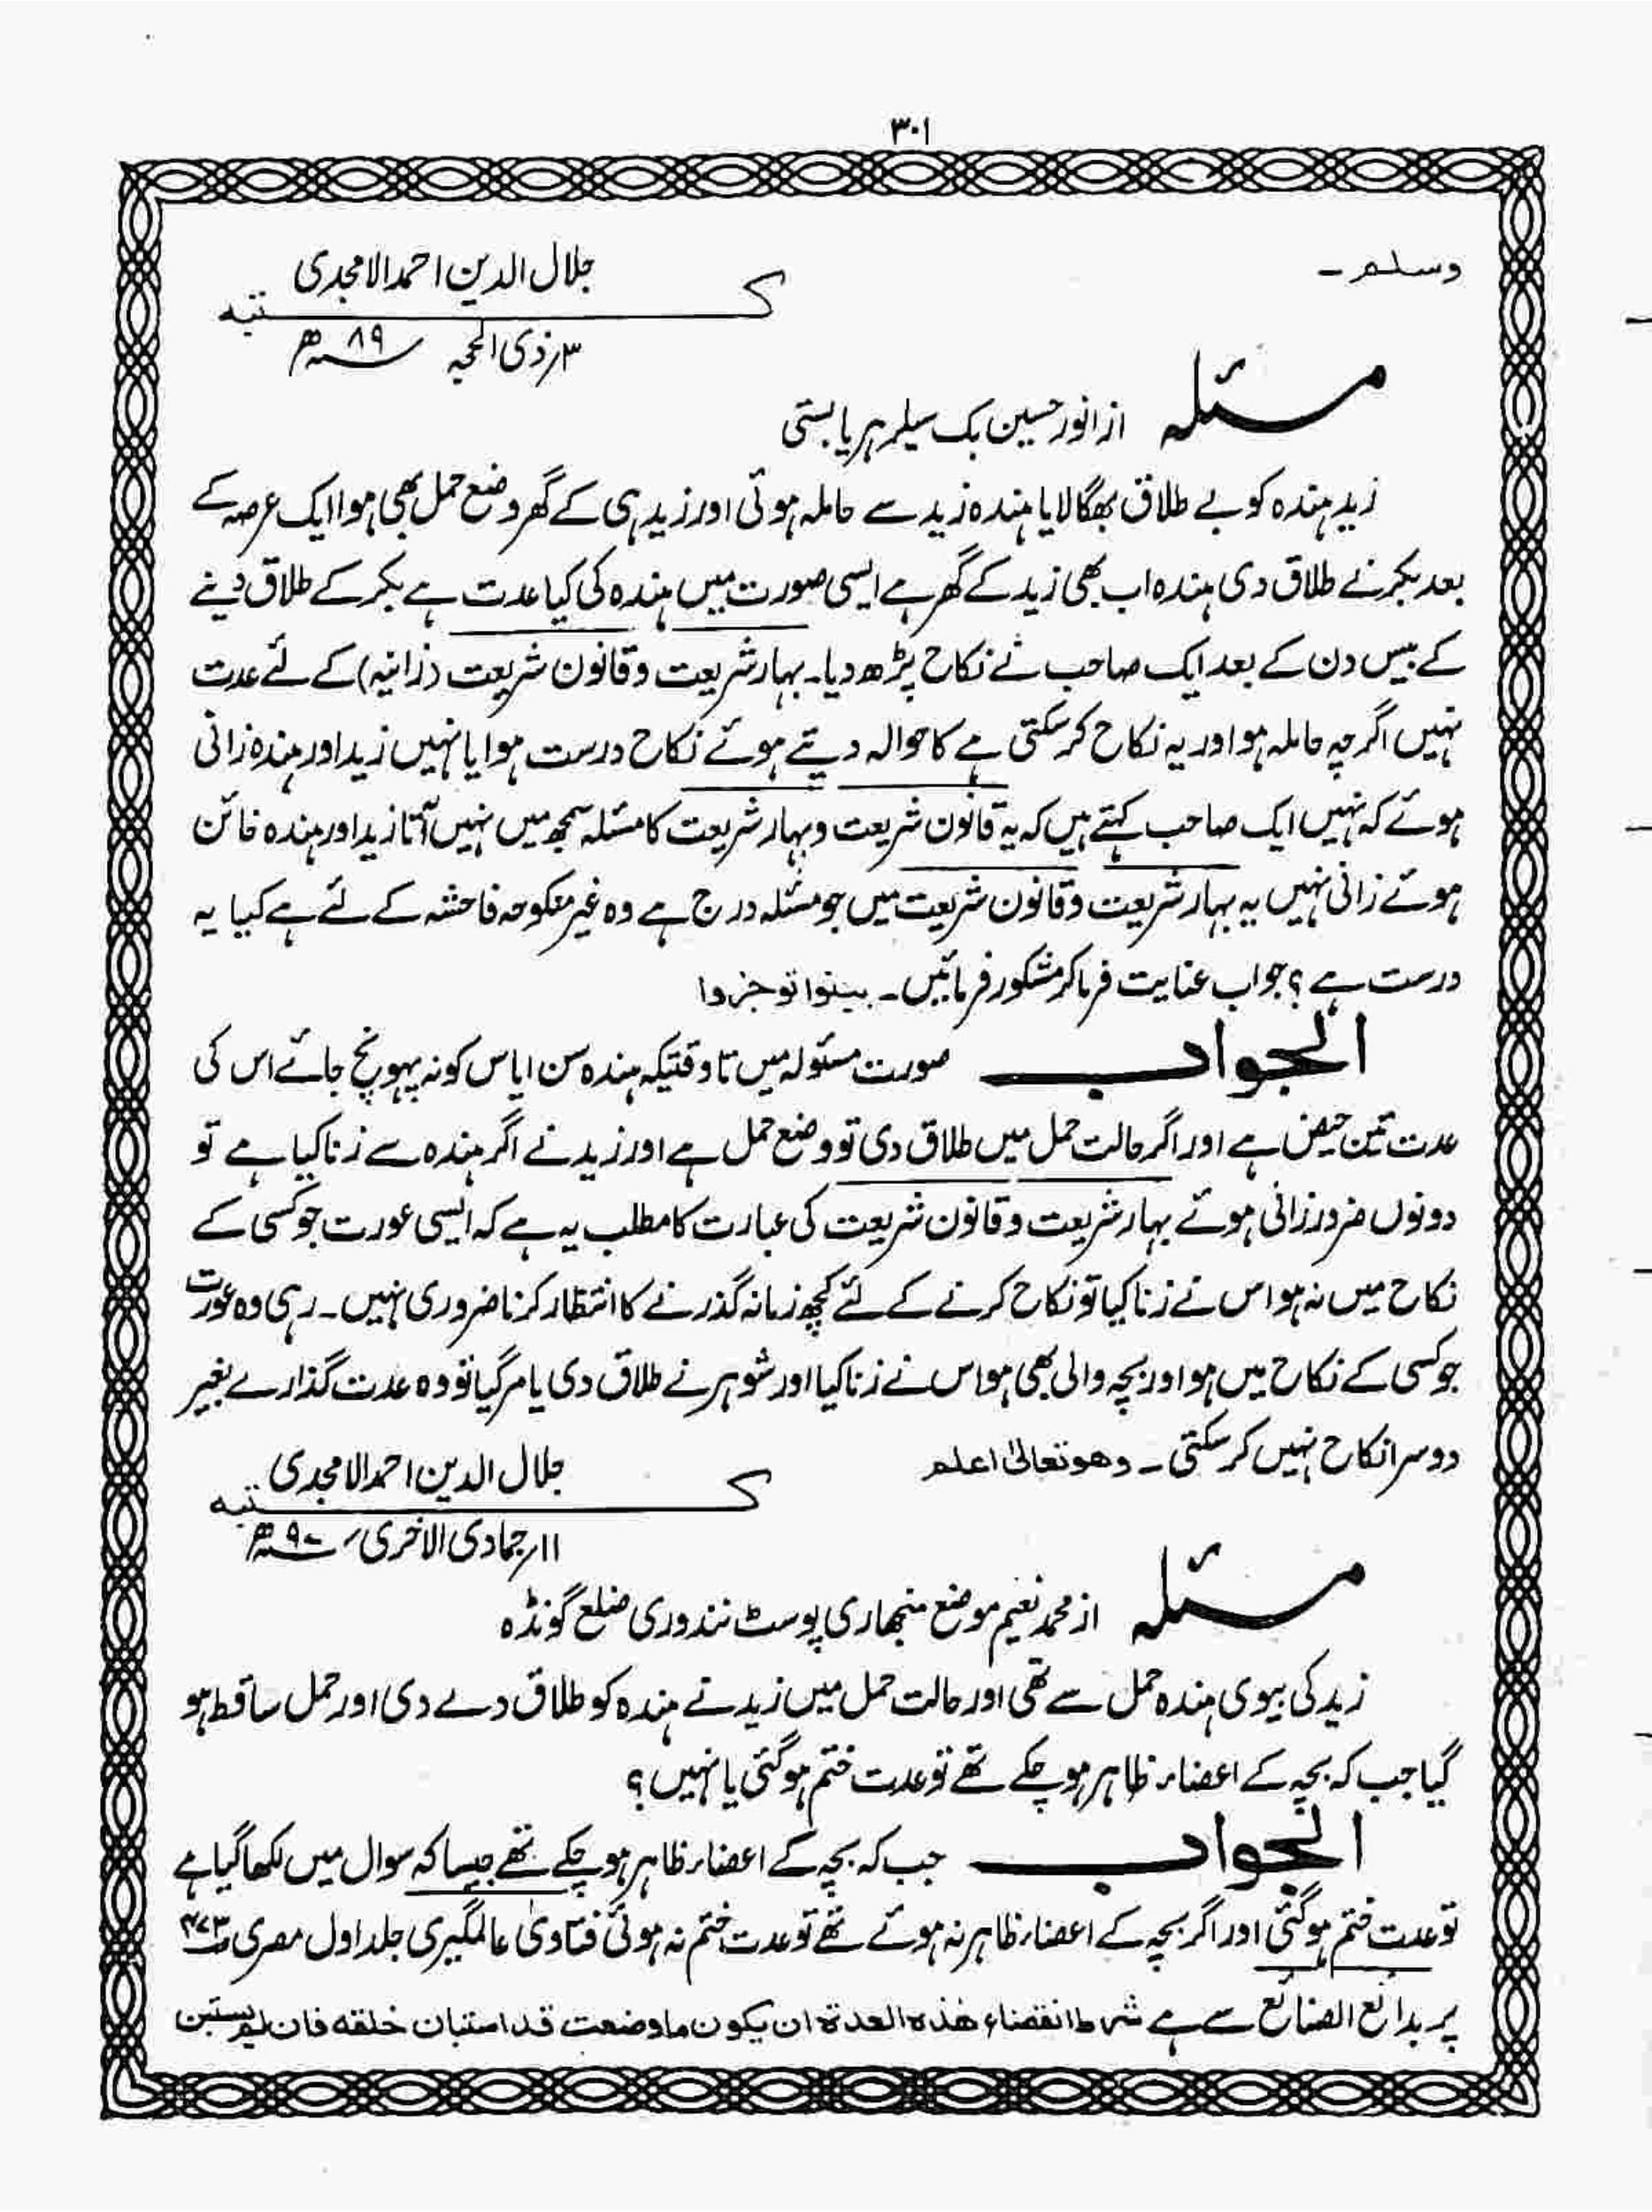 ۳۰۱
وسلم ۔
جلال الدین احمد الامجدی
کتبہ
۳؍ ذی الحجہ ۸۹ھ
مسئلہ از انور حسین بک سیلر ہریا بستی
زید ہندہ کو بے طلاق بھگا لایا ہندہ زید سے حاملہ ہوئی اور زید ہی کے گھر وضع حمل بھی ہوا ایک عرصہ کے
بعد بکر نے طلاق دی ہندہ اب بھی زید کے گھر ہے ایسی صورت میں ہندہ کی کیا عدت ہے بکر کے طلاق دینے
کے بیس دن کے بعد ایک صاحب نے نکاح پڑھ دیا۔ بہار شریعت و قانون شریعت (زانیہ) کے لئے عدت
نہیں اگرچہ حاملہ ہو اور یہ نکاح کر سکتی ہے کا حوالہ دیتے ہوئے نکاح درست ہوا یا نہیں زید اور ہندہ زانی
ہوئے کہ نہیں ایک صاحب کہتے ہیں کہ یہ قانون شریعت و بہار شریعت کا مسئلہ سمجھ میں نہیں آتا زید اور ہندہ خائن
ہوئے زانی نہیں یہ بہار شریعت و قانون شریعت میں جو مسئلہ درج ہے وہ غیر منکوحہ فاحشہ کے لئے ہے کیا یہ
درست ہے؟ جواب عنایت فرما کر مشکور فرمائیں۔ بینوا توجروا
الجواب صورت مسئولہ میں تاوقتیکہ ہندہ سن ایاس کو نہ پہونچ جائے اس کی
عدت تین حیض ہے اور اگر حالت حمل میں طلاق دی تو وضع حمل ہے اور زید نے اگر ہندہ سے زنا کیا ہے تو
دونوں ضرور زانی ہوئے بہار شریعت و قانون شریعت کی عبارت کا مطلب یہ ہے کہ ایسی عورت جو کسی کے
نکاح میں نہ ہو اس نے زنا کیا تو نکاح کرنے کے لئے کچھ زمانہ گذرنے کا انتظار کرنا ضروری نہیں۔ رہی وہ عورت
جو کسی کے نکاح میں ہو اور بچہ والی بھی ہو اس نے زنا کیا اور شوہر نے طلاق دی یا مر گیا تو وہ عدت گذارے بغیر
دوسرا نکاح نہیں کر سکتی ۔ وھو تعالیٰ اعلم
جلال الدین احمد الامجدی
کتبہ
۱۱؍ جمادی الاخری ۹۰ھ
مسئلہ از محمد نعیم موضع منجھاری پوسٹ نندوری ضلع گونڈہ
زید کی بیوی ہندہ حمل سے تھی اور حالت حمل میں زید نے ہندہ کو طلاق دے دی اور حمل ساقط ہو
گیا جب کہ بچہ کے اعضاء ظاہر ہو چکے تھے تو عدت ختم ہو گئی یا نہیں؟
الجواب جب کہ بچہ کے اعضاء ظاہر ہو چکے تھے جیسا کہ سوال میں لکھا گیا ہے
تو عدت ختم ہو گئی اور اگر بچہ کے اعضاء ظاہر نہ ہوئے تھے تو عدت ختم نہ ہوئی فتاویٰ عالمگیری جلد اول مصری ص۴۷۳
پر بدائع الصنائع سے ہے شرط انقضاء ھذہ العدۃ ان یکون ما وضعت قد استبان خلقہ فان لم یستبن